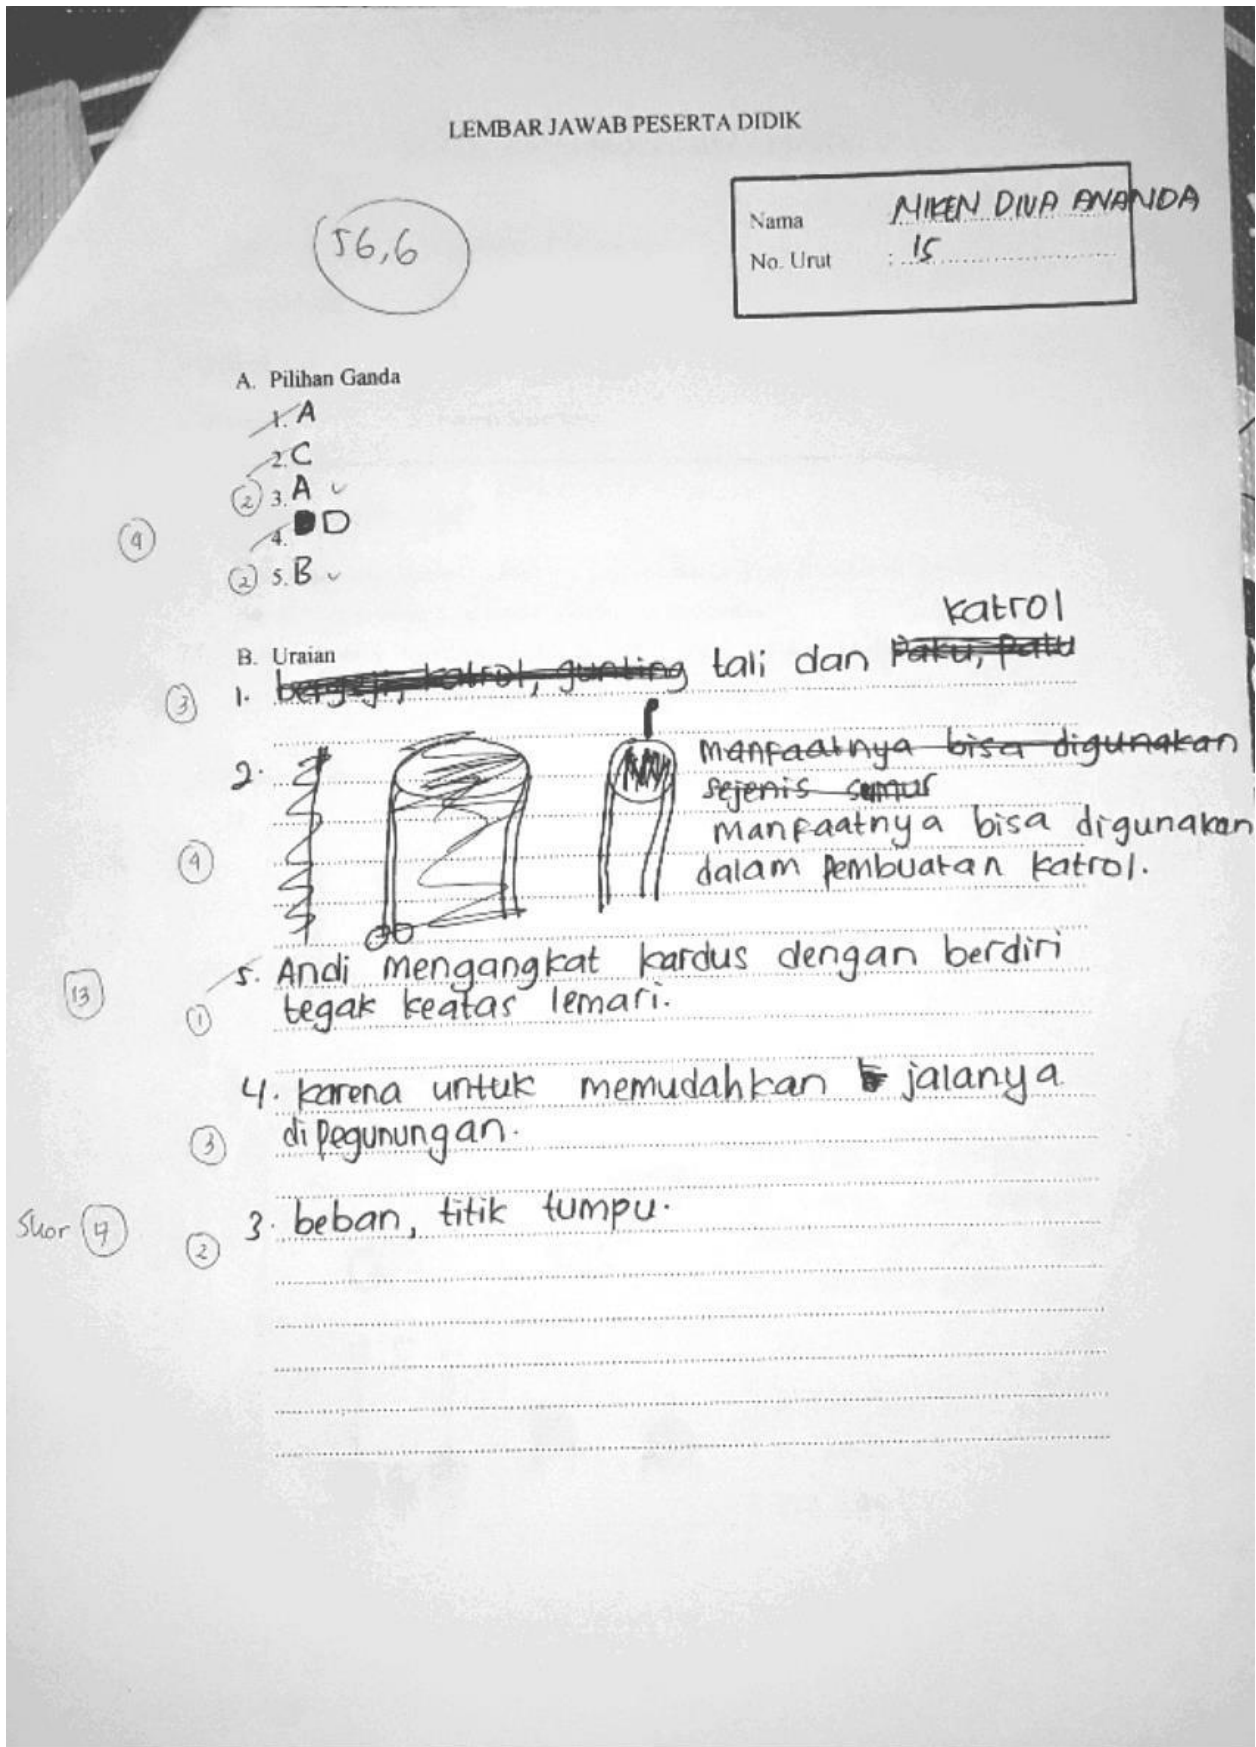 LEMBAR JAWAB PESERTA DIDIK
56,6
Nama NIKEN DIVA ANANDA
No. Urut : 15
A. Pilihan Ganda
1. A
2. C
(2) 3. A ✓
(4)
4. D
(2) 5. B ✓
katrol
B. Uraian
(3) 1. bergerji, katrol, gunting tali dan Paku, Palu
2. manfaatnya bisa digunakan
sejenis sumur
manfaatnya bisa digunakan
(4) dalam pembuatan katrol.
5. Andi mengangkat kardus dengan berdiri
(13)
(1) tegak keatas lemari.
4. karena untuk memudahkan jalanya
(3) dipegunungan.
Skor (17)
(2) 3. beban, titik tumpu.